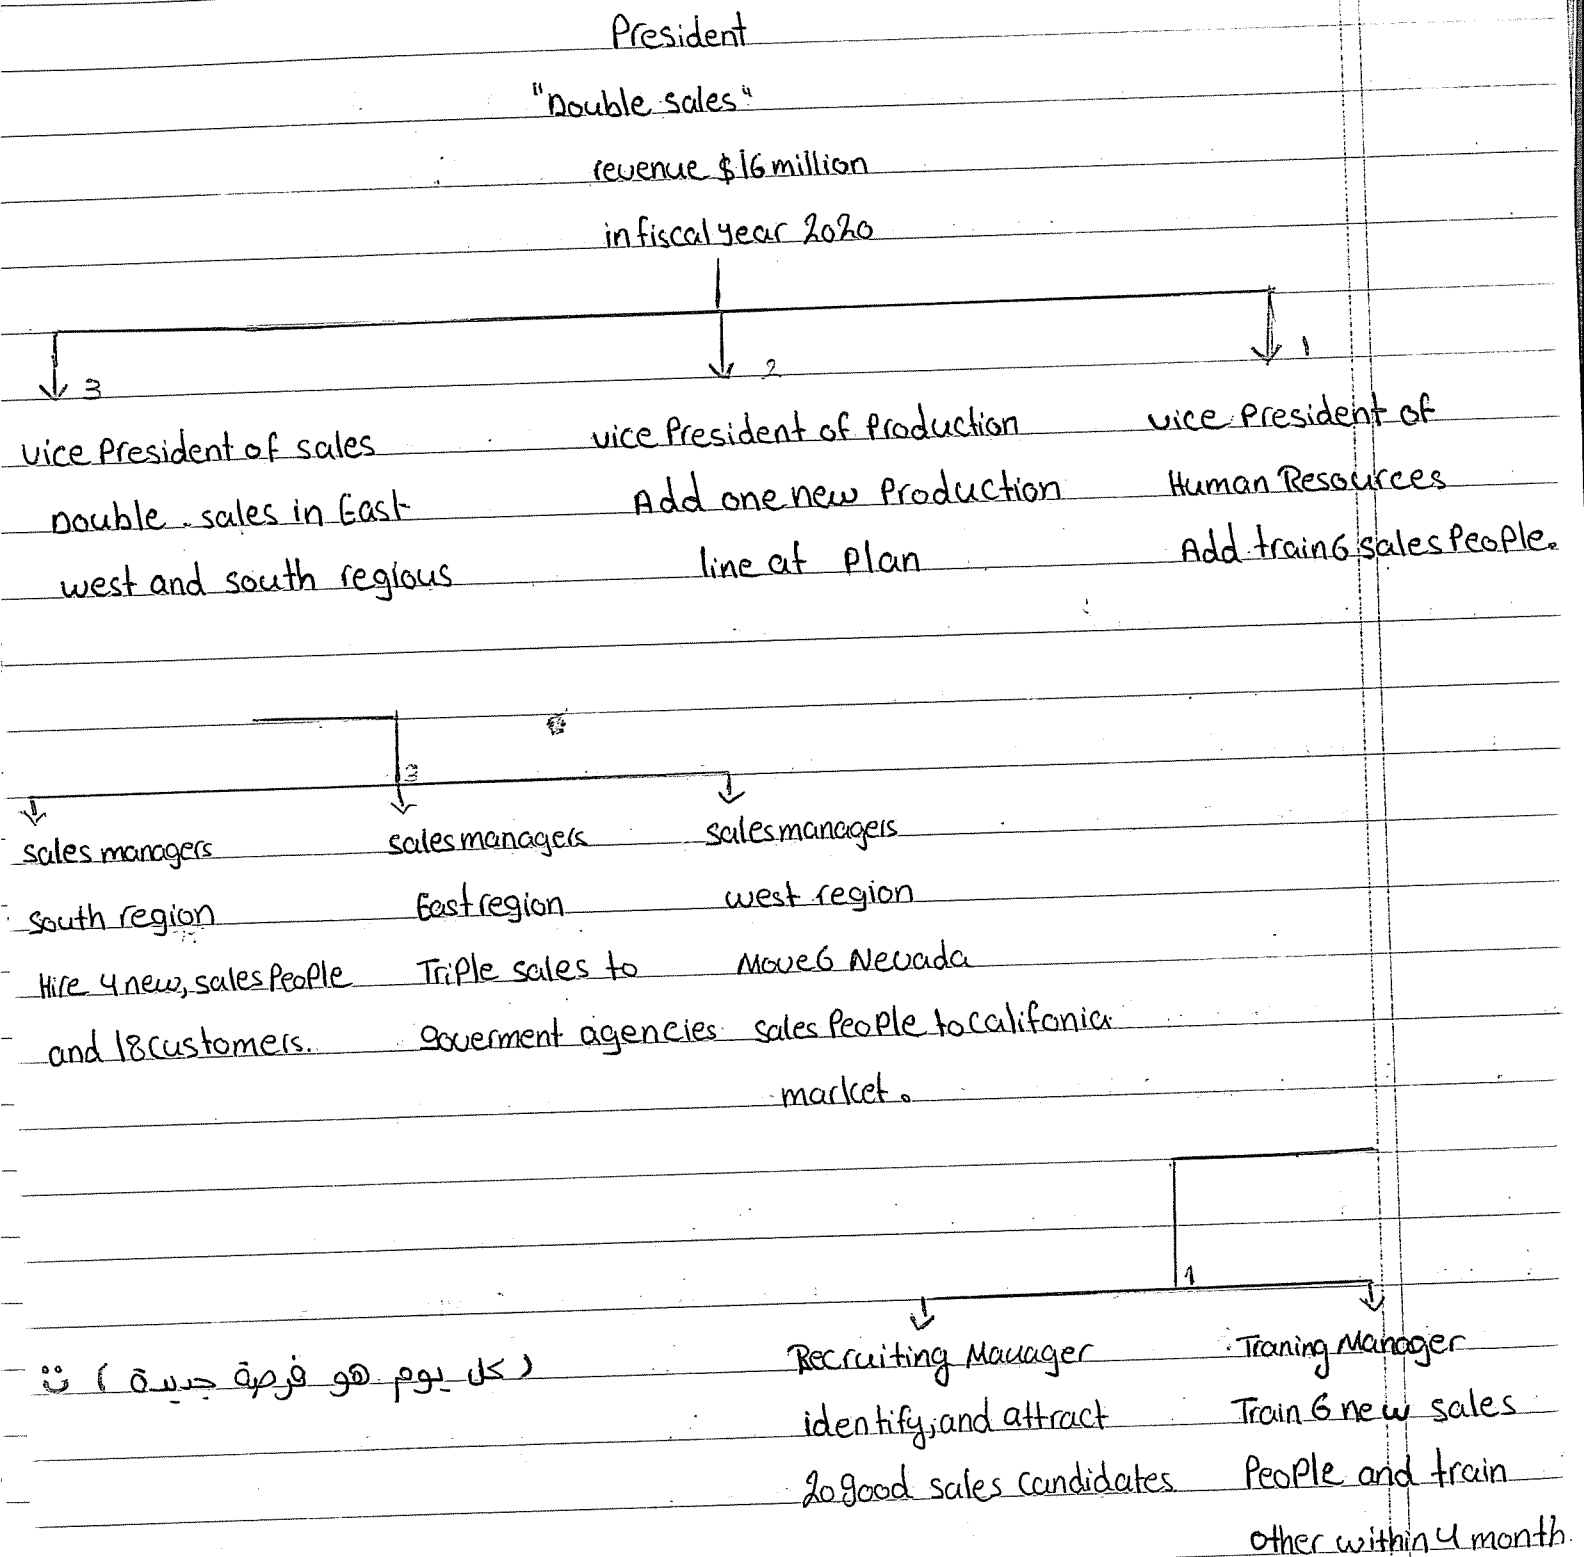 President
"Double sales"
revenue $16 million
in fiscal year 2020
3
2
1
vice President of sales
Double sales in East
west and south regious
vice President of Production
Add one new Production
line at Plan
vice President of
Human Resources
Add train 6 sales People.
3
sales managers
south region
Hire 4 new, sales People
and 18 customers.
sales managers
East region
Triple sales to
goverment agencies
sales managers
west region
Move 6 Nevada
sales People to Califonia
market.
1
Recruiting Manager
identify, and attract
20 good sales candidates
Traning Manager
Train 6 new sales
People and train
other within 4 month.
(كل يوم هو فرصة جديدة)